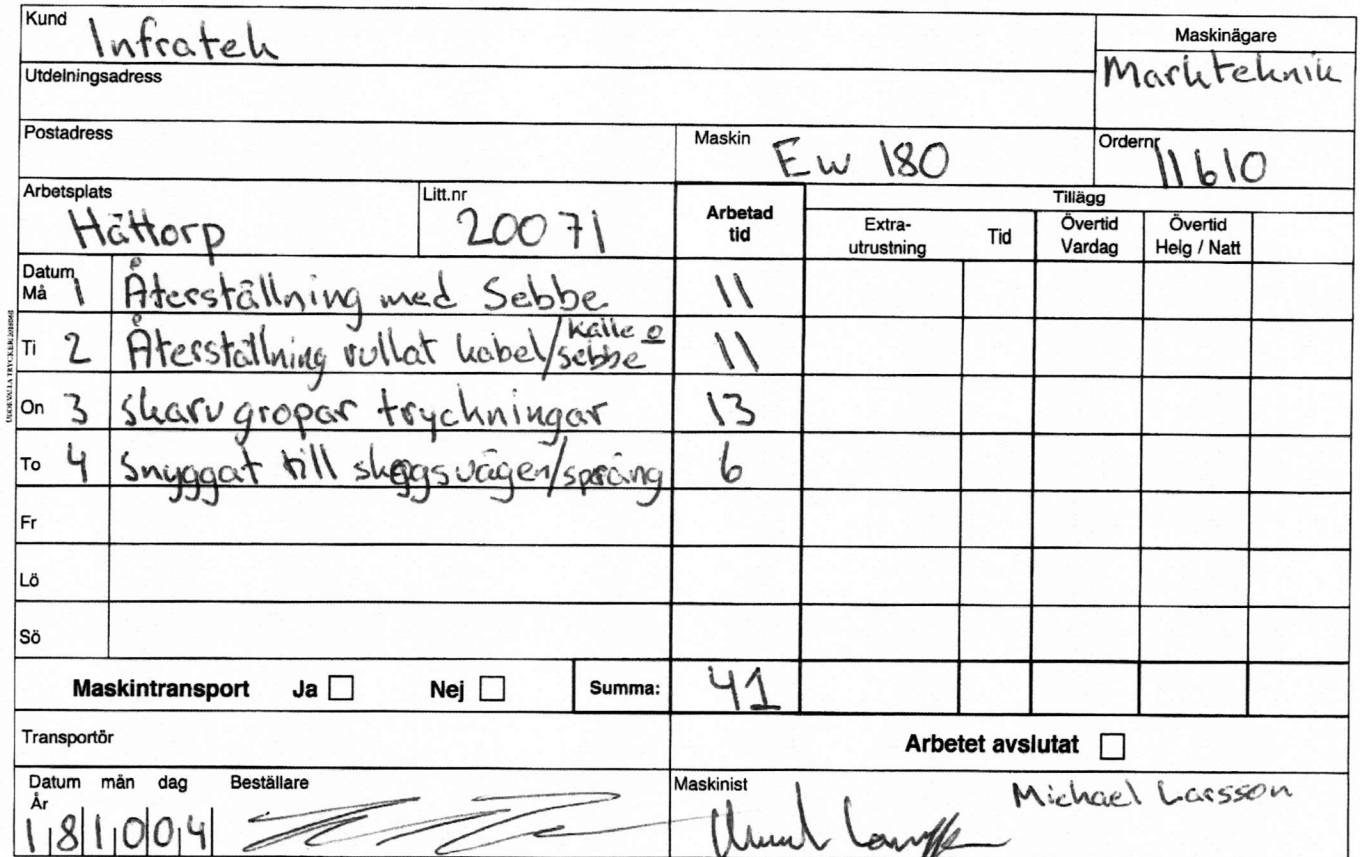 Kund
Infratek
Maskinägare
Markteknik
Utdelningsadress
Postadress
Maskin
Ew 180
Ordernr
11610
Arbetsplats
Hättorp
Litt.nr
20071
Arbetad tid
Tillägg
Extra-utrustning Tid Övertid Vardag Övertid Helg / Natt
Datum
Må 1 Återställning med Sebbe 11
Ti 2 Återställning rullat kabel/Kalle o sebbe 11
On 3 skarvgropar tryckningar 13
To 4 Snyggat till skogsvägen/spräng 6
Fr
Lö
Sö
Maskintransport Ja Nej Summa: 41
Transportör
Arbetet avslutat
Datum mån dag Beställare
År
181004
Maskinist
Michael Larsson